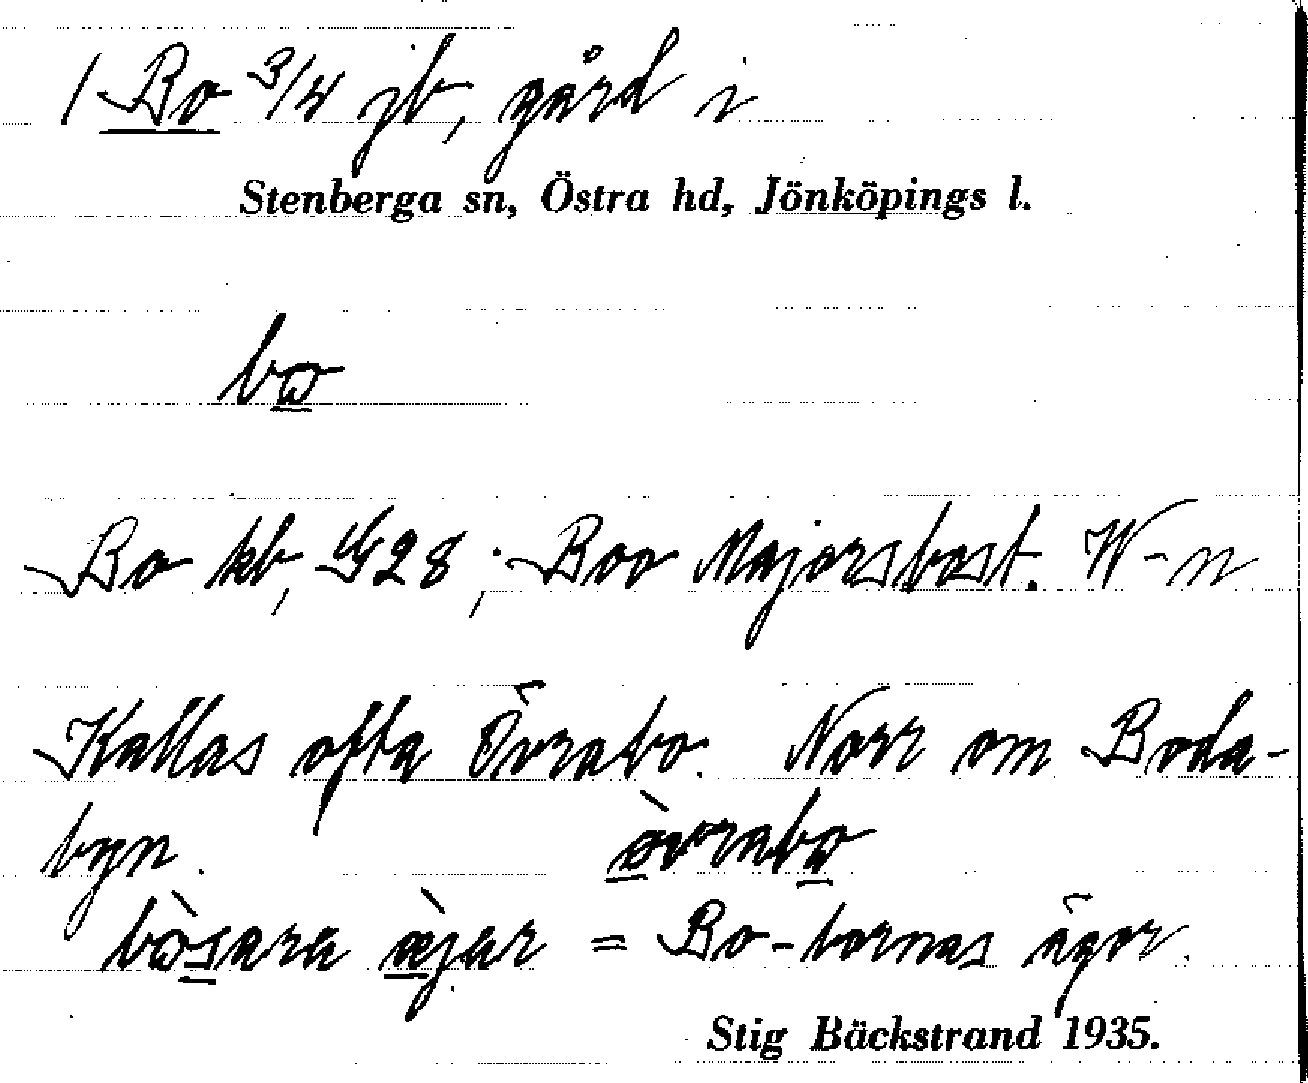 1 Bo 3/4 jb, gård i
Stenberga sn, Östra hd, Jönköpings l.
bω
Bo kb, G28; Boo Majorsbost. W-n
Kallas ofta Övrabo. Norr om Boda-
byn. ø̀vrabω
bὼsara æ̀jar = Bo-bornas ägor.
Stig Bäckstrand 1935.